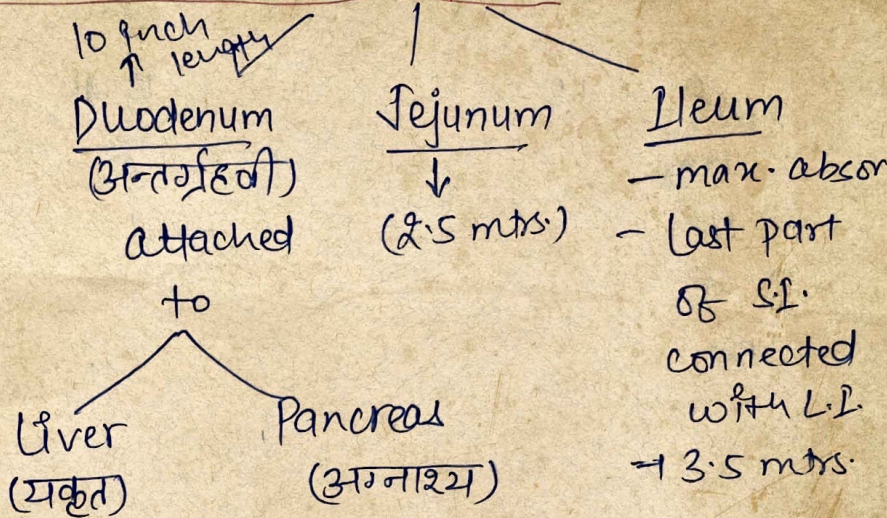 10 inch
↑ length
Duodenum
(अन्तर्ग्रहवी)
attached
to
Liver
(यकृत)
Pancreas
(अग्नाश्य)
Jejunum
↓
(2.5 mtrs.)
Ileum
- max. absor
- Last part
of S.I.
connected
with L.I.
→ 3.5 mtrs.